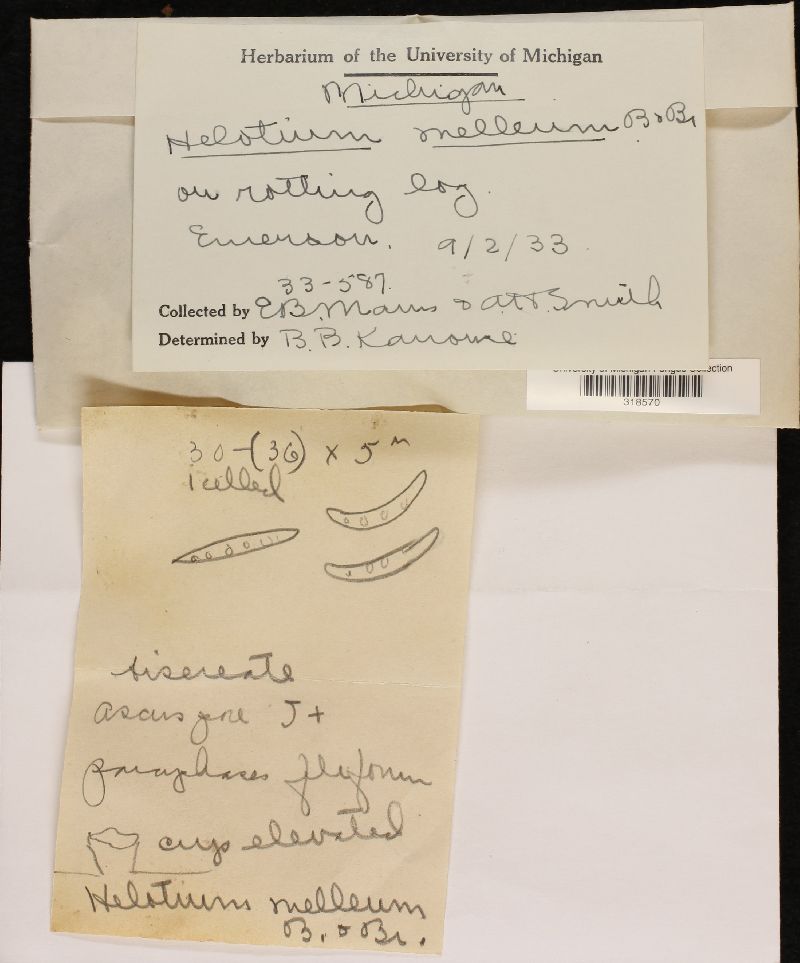 Herbarium of the University of Michigan
Michigan
Helotium melleum B & Br
on rotting log.
Emerson. 9/2/33.
33-587.
Collected by E.B. Mains & A.H. Smith
Determined by B. B. Kanouse
University of Michigan Fungus Collection
318570
30-(36) x 5 m
1 celled
biseriate
ascus pore J+
paraphyses filiform
cups elevated
Helotium melleum
B. & Br.